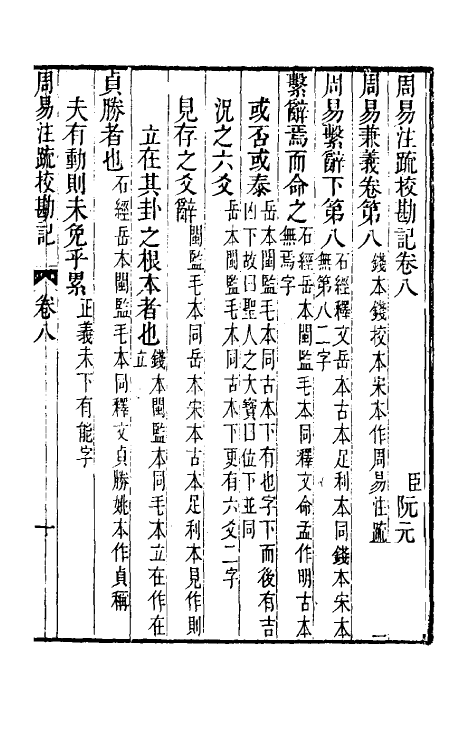 周易注䟽校勘記卷八
臣阮元
周易兼義卷第八
錢本錢校本宋本作周易注䟽
周易繫辭下第八
石經釋文岳本古本足利本同錢本宋本
無第八二字
繫辭焉而命之
石經岳本閩監毛本同釋文命孟作明古本
無焉字
或否或泰
岳本閩監毛本同古本下有也字下而後有吉
凶下故曰聖人之大寶曰位下並同
況之六爻
岳本閩監毛本同古本下更有六爻二字
見存之爻辭
閩監毛本同岳本宋本古本足利本見作則
立在其卦之根本者也
錢本閩監本同毛本立在作在
立
貞勝者也
石經岳本閩監毛本同釋文貞勝姚本作貞稱
夫有動則未免乎累
正義未下有能字
周易注䟽校勘記
卷八